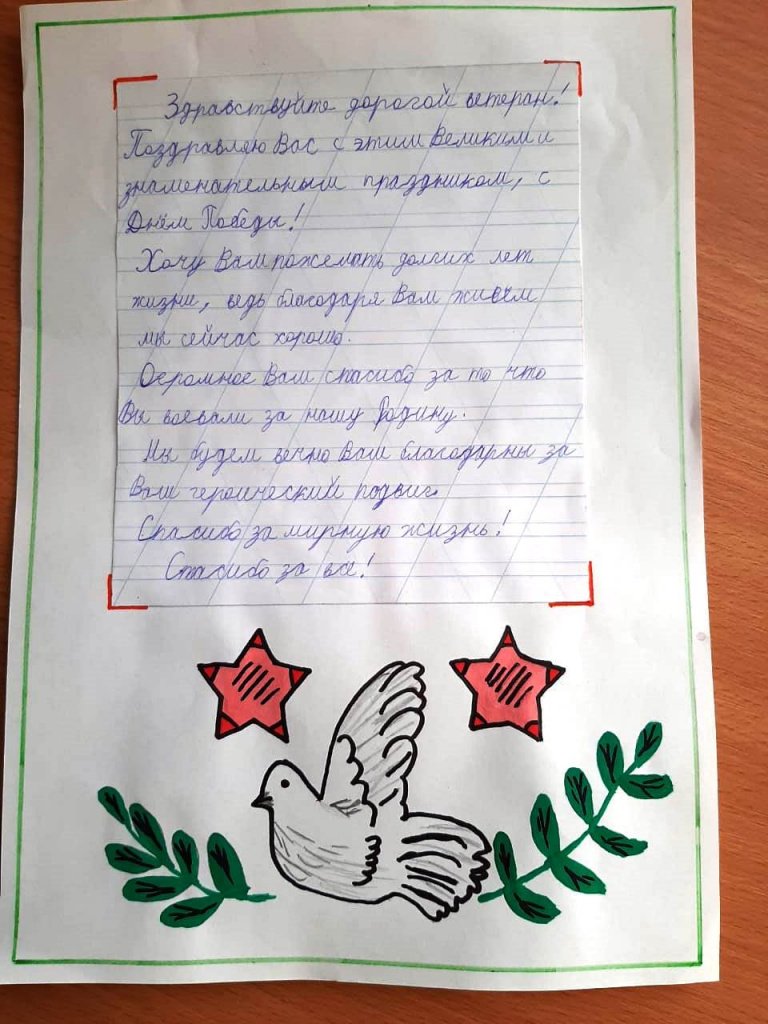 Здравствуйте дорогой ветеран!
Поздравляю Вас с этим Великим и
знаменательным праздником, с
Днём Победы!
Хочу Вам пожелать долгих лет
жизни, ведь благодаря Вам живём
мы сейчас хорошо.
Огромное Вам спасибо за то что
Вы воевали за нашу Родину.
Мы будем вечно Вам благодарны за
Ваш героический подвиг.
Спасибо за мирную жизнь!
Спасибо за все!